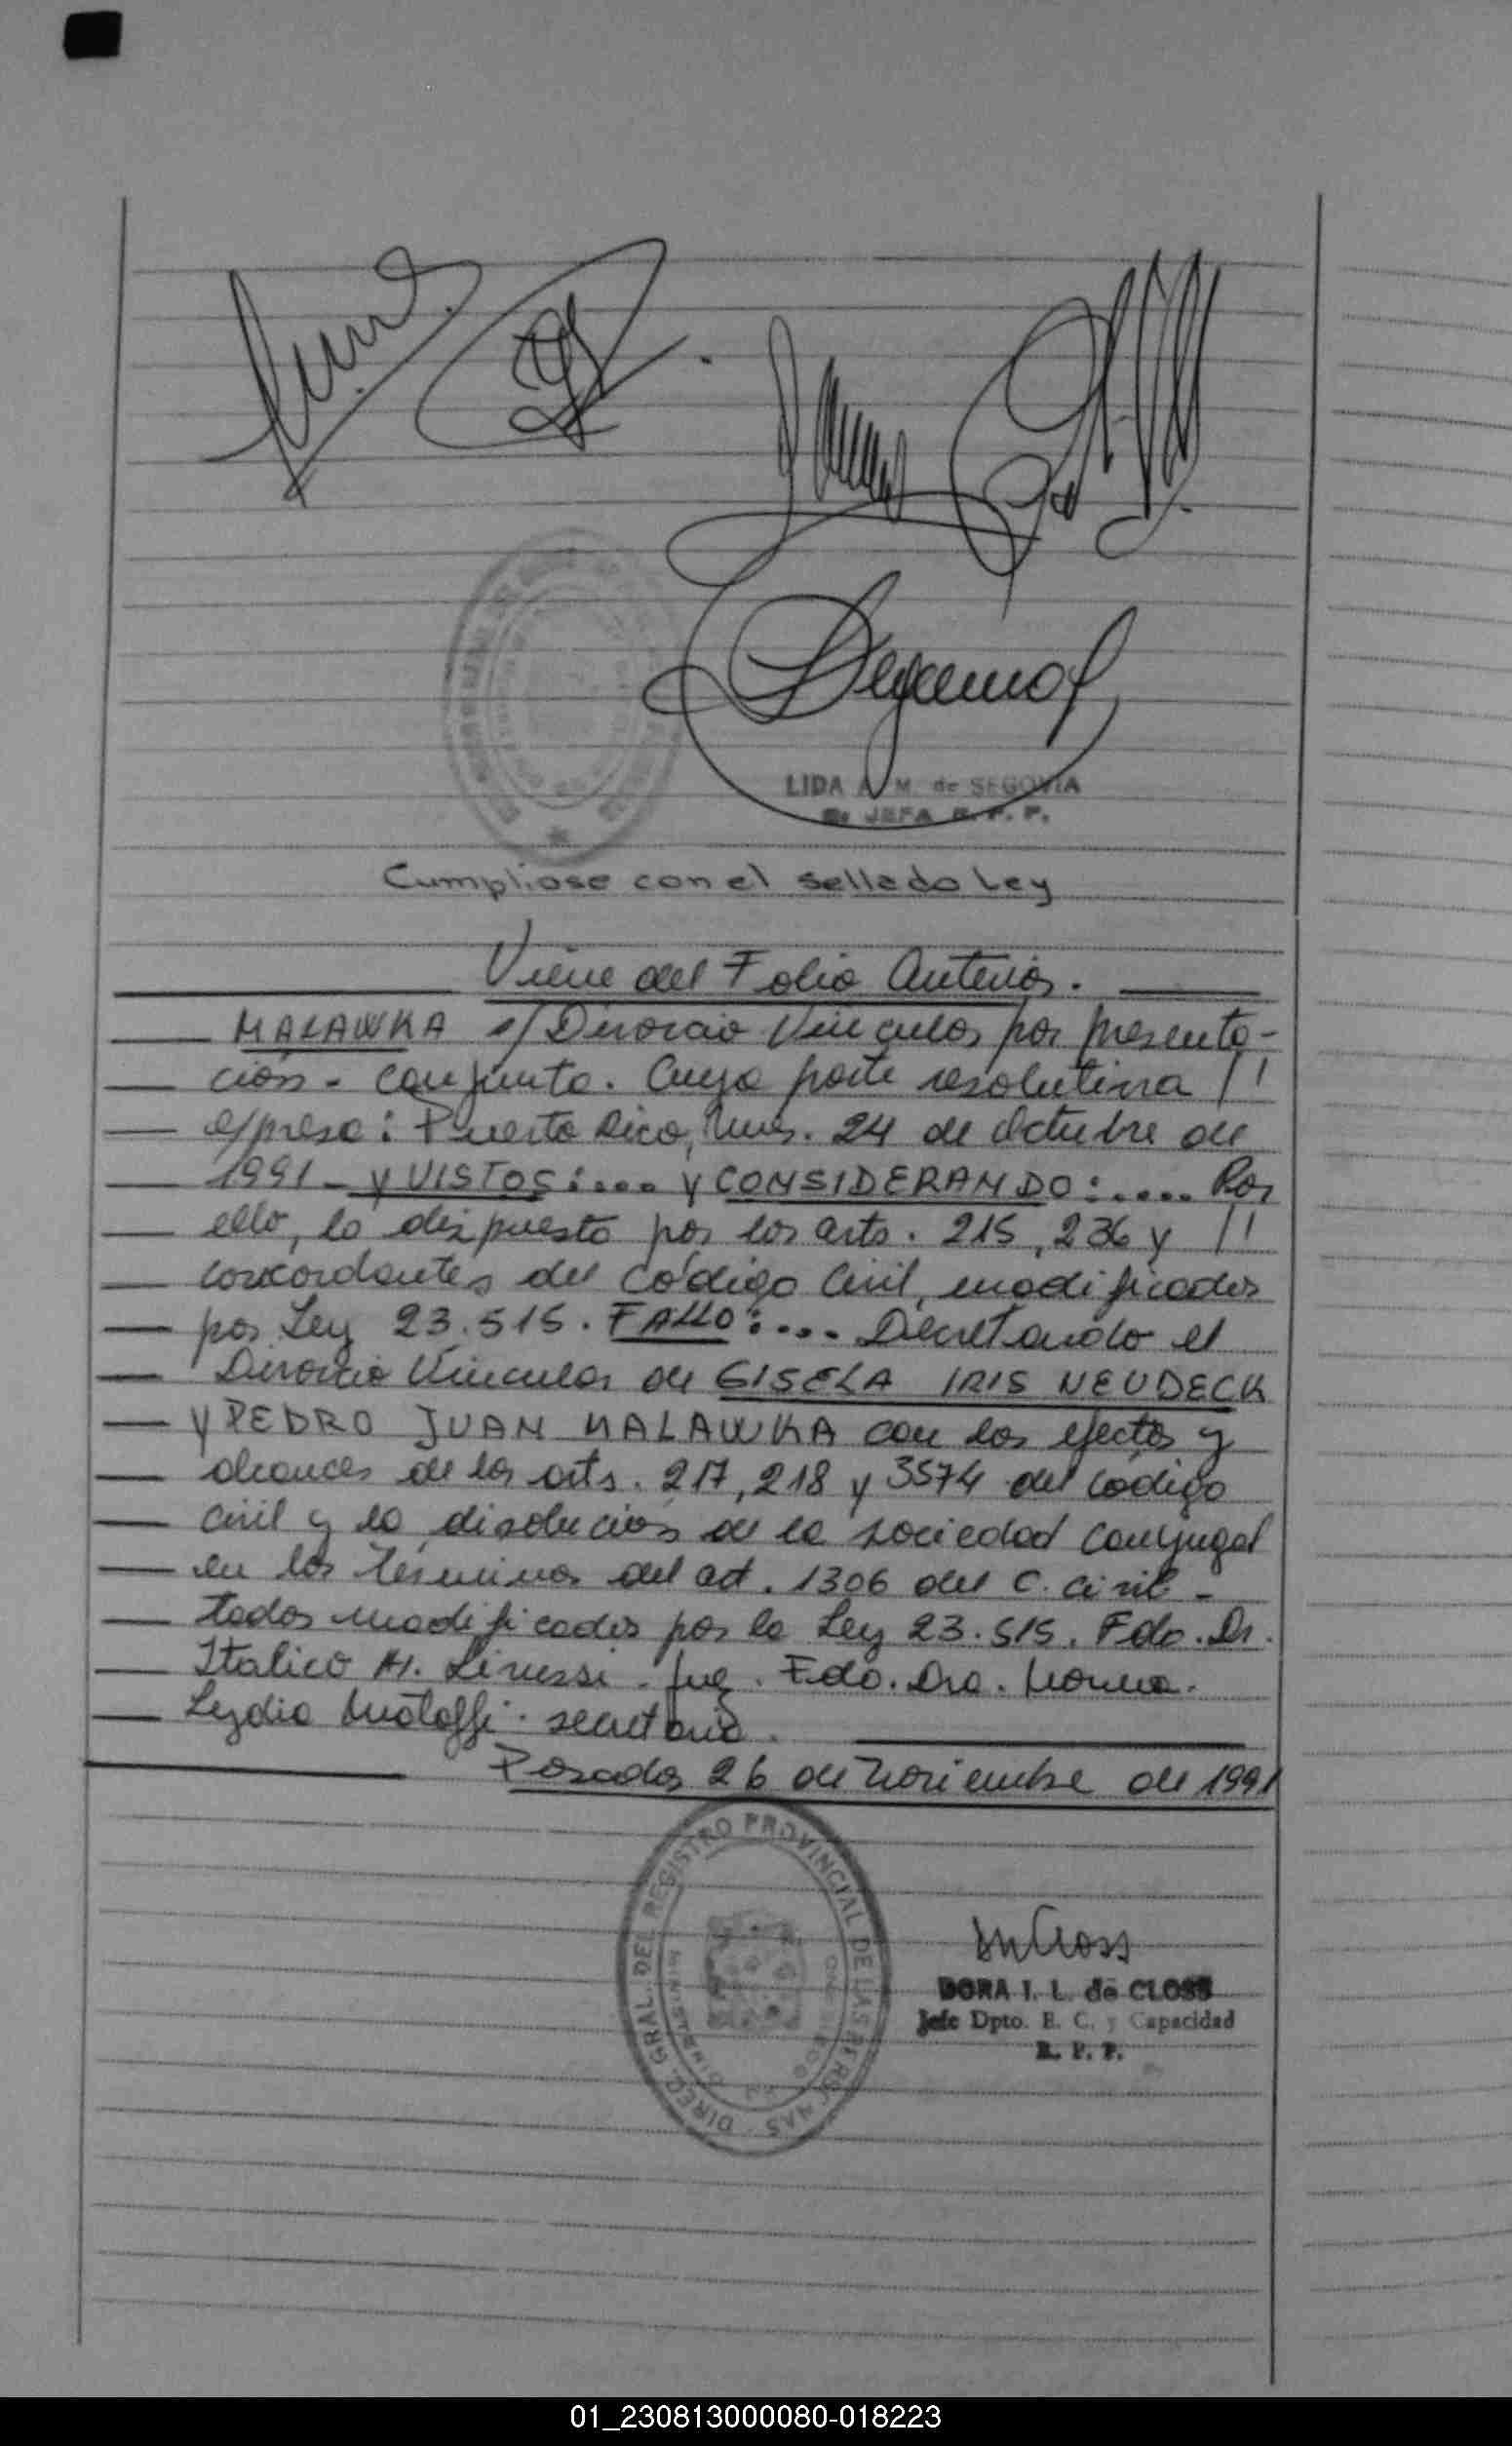 LIDA A. M. de SEGOVIA
JEFA R. P. P.
Cumpliose con el sellado Ley
Viene del Folio Anterior.
MALAWKA s/ Divorcio Vincular por presenta-
ción - conjunta. Cuya parte resolutiva //
expresa: Puerto Rico, Mnes. 24 de Octubre de
1991 - Y VISTOS:.... Y CONSIDERANDO:..... Por
ello, lo dispuesto por los arts. 215, 236 y //
concordantes del Código Civil, modificados
por Ley 23.515. FALLO:.... Decretando el
Divorcio Vincular de GISELA IRIS NEUDECK
Y PEDRO JUAN MALAWKA con los efectos y
alcances de los arts. 217, 218 y 3574 del Código
Civil y la disolución de la sociedad conyugal
en los términos del art. 1306 del C. Civil -
todos modificados por la Ley 23.515. Fdo. Dr.
Italico H. Juez. Fdo. Dra. Norma.
Lydia secretaria.
Posadas 26 de Noviembre de 1991
DIREC. GRAL. DEL REGISTRO PROVINCIAL DE LAS PERSONAS
MINISTERIO
DORA I. L. de CLOSS
Jefe Dpto. E. C. y Capacidad
R. P. P.
01_230813000080-018223